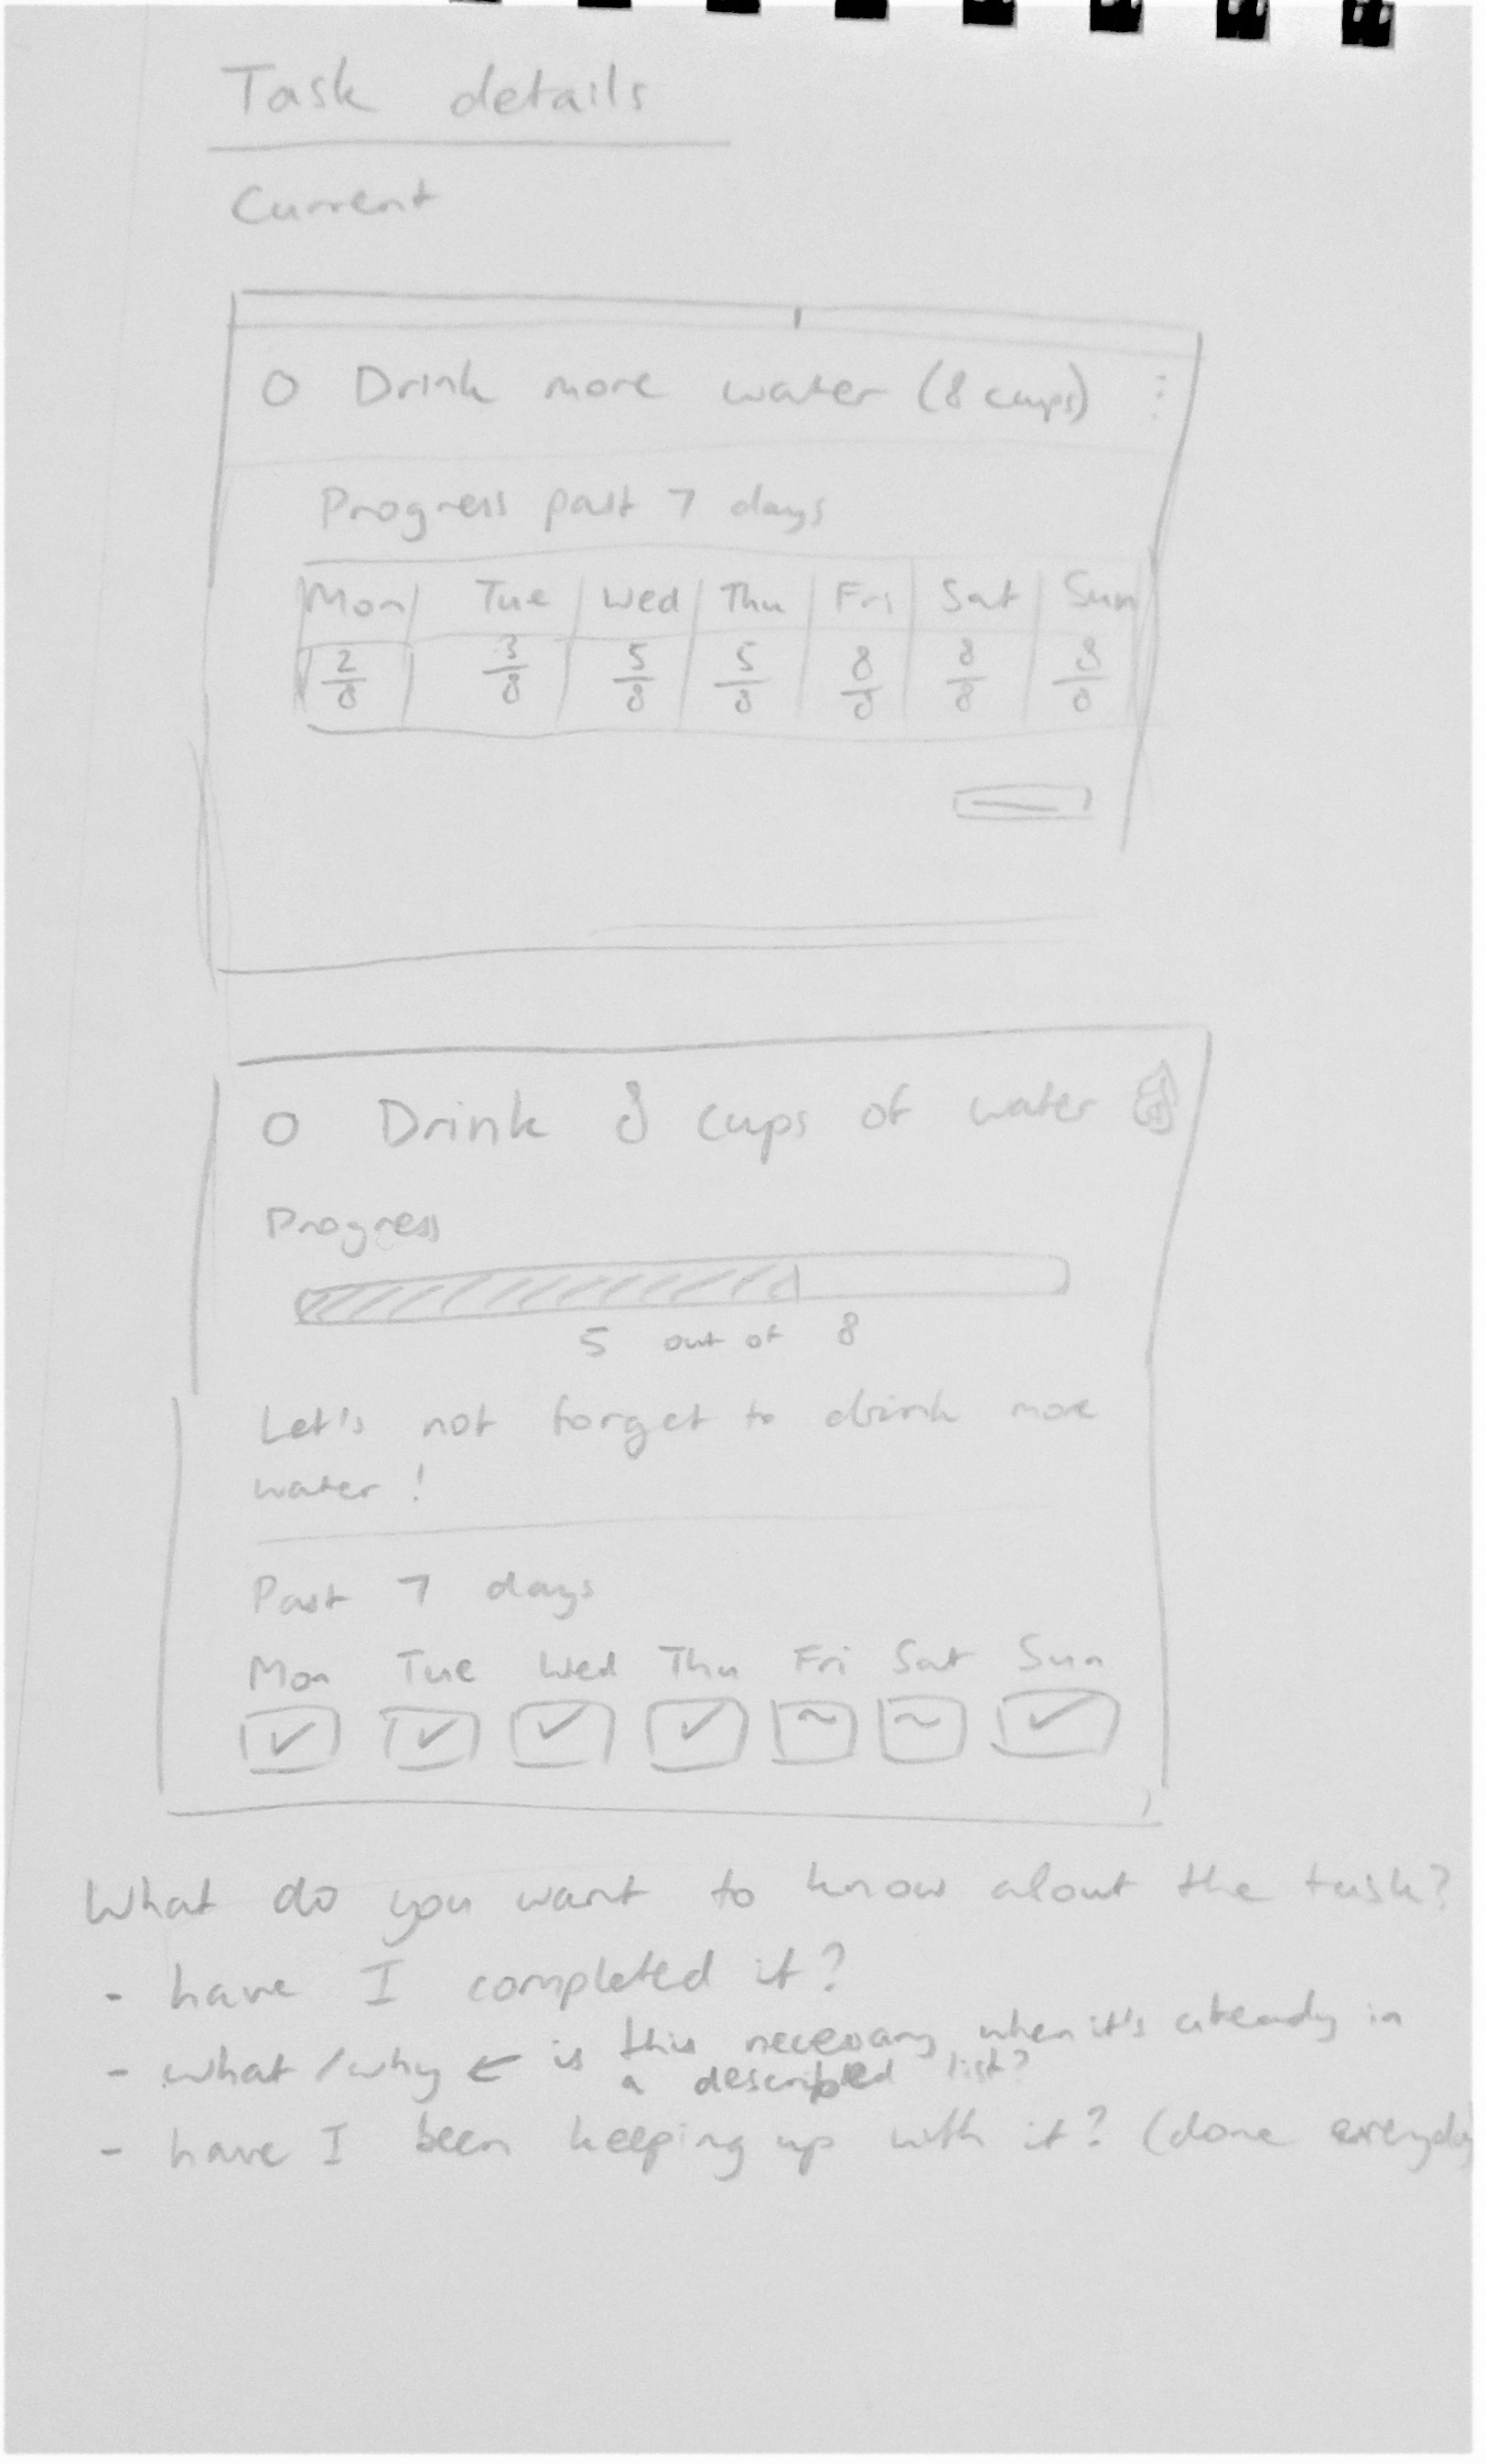 Task details
Current
O Drink more water (8 cups)
Progress past 7 days
Mon Tue Wed Thu Fri Sat Sun
2/8 3/8 5/8 5/8 8/8 8/8 8/8
O Drink 8 cups of water
Progress
5 out of 8
Let's not forget to drink more
water!
Past 7 days
Mon Tue Wed Thu Fri Sat Sun
✓ ✓ ✓ ✓ ~ ~ ✓
What do you want to know about the task?
- have I completed it?
- what / why ← is this necessary when it's already in
a described list?
- have I been keeping up with it? (done everyday